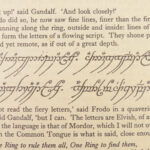 up!' said Gandalf. 'And look closely!'
do so, he now saw fine lines, finer than the fin
running along the ring, outside and inside: lines of
form the letters of a flowing script. They shone p
d yet remote, as if out of a great depth.
not read the fiery letters,' said Frodo in a quaverin
said Gandalf, 'but I can. The letters are Elvish, of a
the language is that of Mordor, which I will not u
the Common Tongue is what is said, close enoug
e Ring to rule them all, One Ring to find them,